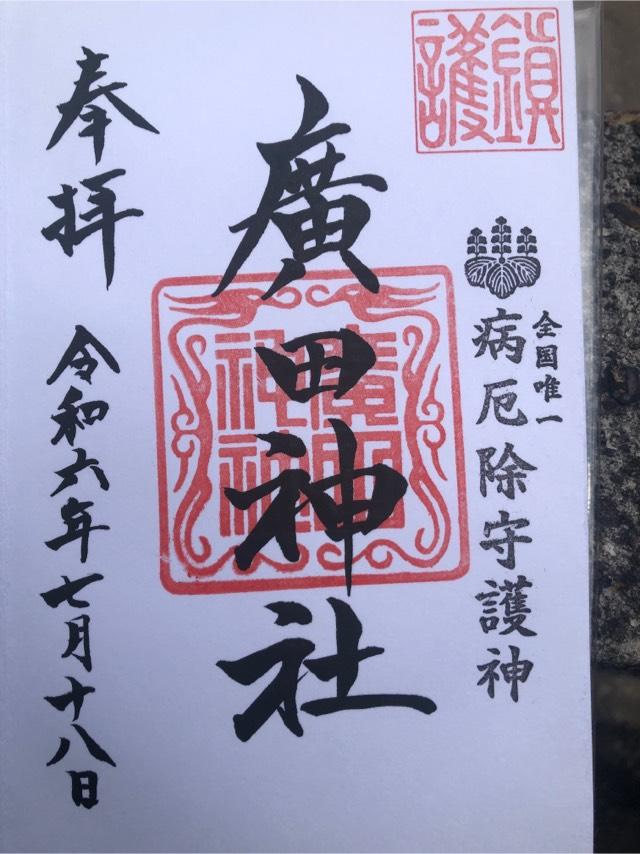 鎮護
全国唯一
病厄除守護神
廣田神社
廣田神社
奉拝
令和六年七月十八日